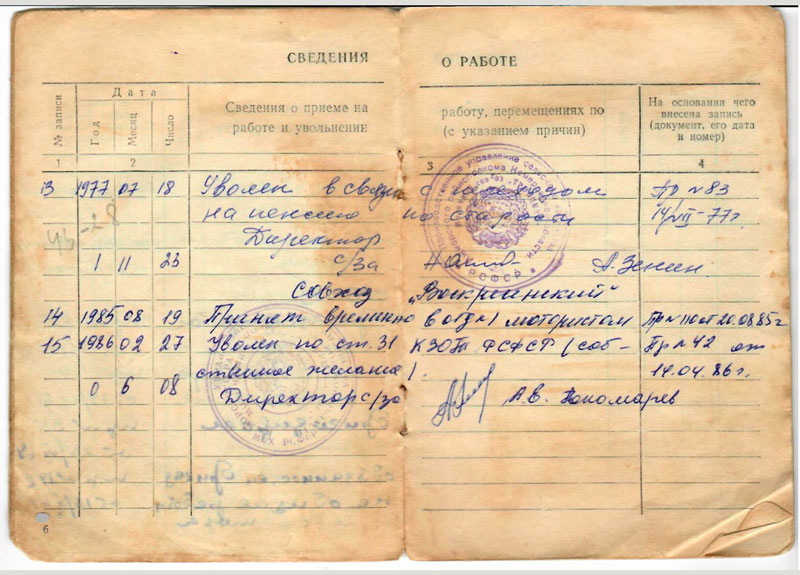 СВЕДЕНИЯ О РАБОТЕ
№ записи
Дата
Год
Месяц
Число
Сведения о приеме на работу, перемещениях по
работе и увольнении (с указанием причин)
На основании чего
внесена запись
(документ, его дата
и номер)
1 2 3 4
13 1977 07 18 Уволен в связи с переходом Пр № 83
на пенсию по старости 14/VII-77г.
Директор
1 11 23 с/за А. Зенин
Совхоз
14 1985 08 19 Принят временно мотористом Пр № 110 от 20.08.85г
15 1986 02 27 Уволен по ст. 31 КЗОТа РСФСР (соб- Пр № 42 от
ственное желание). 14.04.86г.
0 6 08 Директор с/за А.В. Пономарев
РСФСР
6